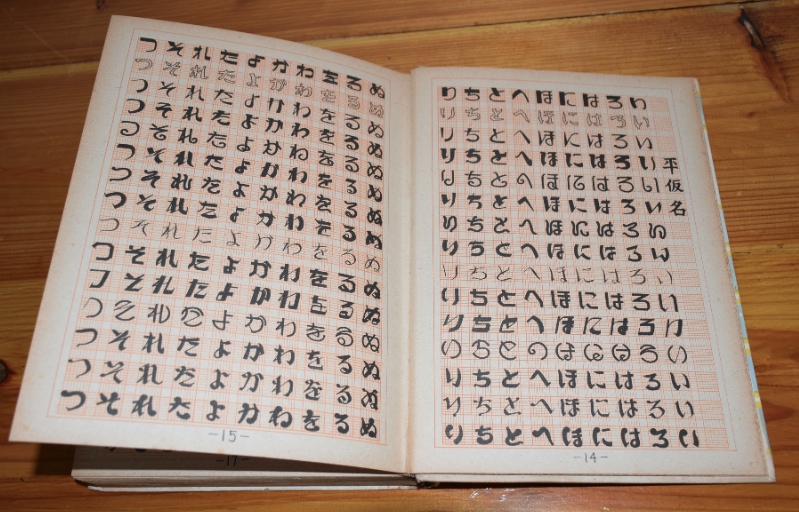 平仮名
いいいいいいいいいいいいいいい
ろろろろろろろろろろろろろろろ
ははははははははははははははは
ににににににににににににににに
ほほほほほほほほほほほほほほほ
へへへへへへへへへへへへへへへ
ととととととととととととととと
ちちちちちちちちちちちちちちち
りりりりりりりりりりりりりりり
-14-
ぬぬぬぬぬぬぬぬぬぬぬぬぬぬぬ
るるるるるるるるるるるるるるる
ををををををををををををををを
わわわわわわわわわわわわわわわ
かかかかかかかかかかかかかかか
よよよよよよよよよよよよよよよ
たたたたたたたたたたたたたたた
れれれれれれれれれれれれれれれ
そそそそそそそそそそそそそそそ
つつつつつつつつつつつつつつつ
-15-